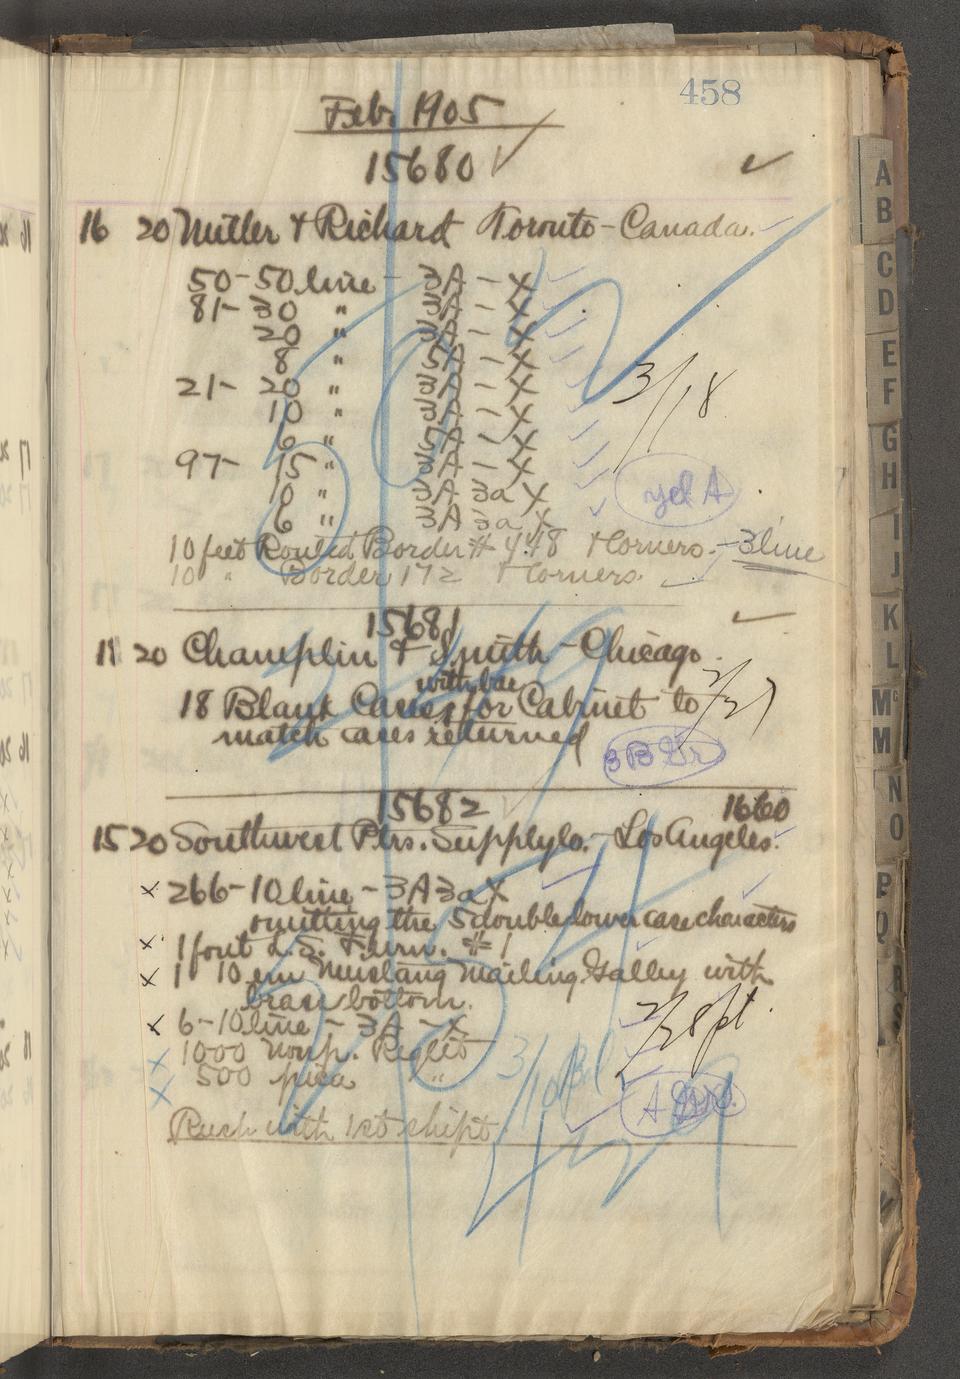 458
Feb. 1905
15680
16 20 Miller & Richard Toronto-Canada.
50-50 line - 3A - X
81-30 " 3A - X
20 " 3A - X
8 " 5A - X
21-20 " 3A - X
10 " 3A - X
6 " 5A - X
97-15 " 3A - X
10 " 3A 3a X
6 " 3A 3a X
3/18
yel A
10 feet Routed Border # 448 & Corners. - 3 line
10 " Border 172 & Corners.
15681
18 20 Champlin & Smith - Chicago.
with bar
18 Blank Cases for Cabinet to
match cases returned
2/27
3 B Gr
15682 1660
15 20 Southwest Ptrs. Supply Co. - Los Angeles.
x 266-10 line - 3A 3a X
omitting the 5 double lower case characters
x 1 font L.S. Furn. # 1
x 1 10 em Mustang Mailing Galley with
brass bottom.
x 6-10 line - 3A - X
2/28 pt.
x 1000 Nonp. Reglet
x 500 pica "
3/10 Bal
Rush with 1st shipt
A
B
C
D
E
F
G
H
I
J
K
L
Mc
M
N
O
P
Q
R
S